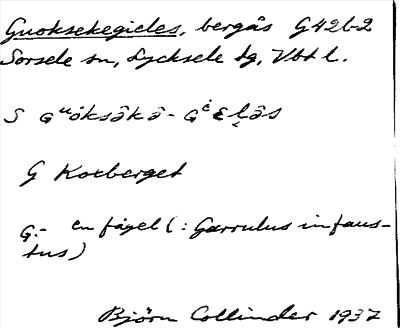 Guoksekegieles, bergås G42b2
Sorsele sn, Lycksele lg, Vbtl.
S Guöksâkâ-
G Korberget
G.- en fågel (: Garrulus infaus-
tus)
Björn Collinder 1937